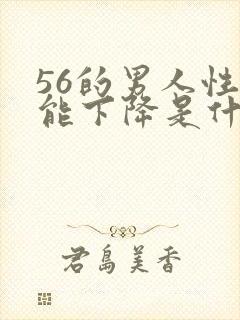 56的男人性
能下降是什
君島美香